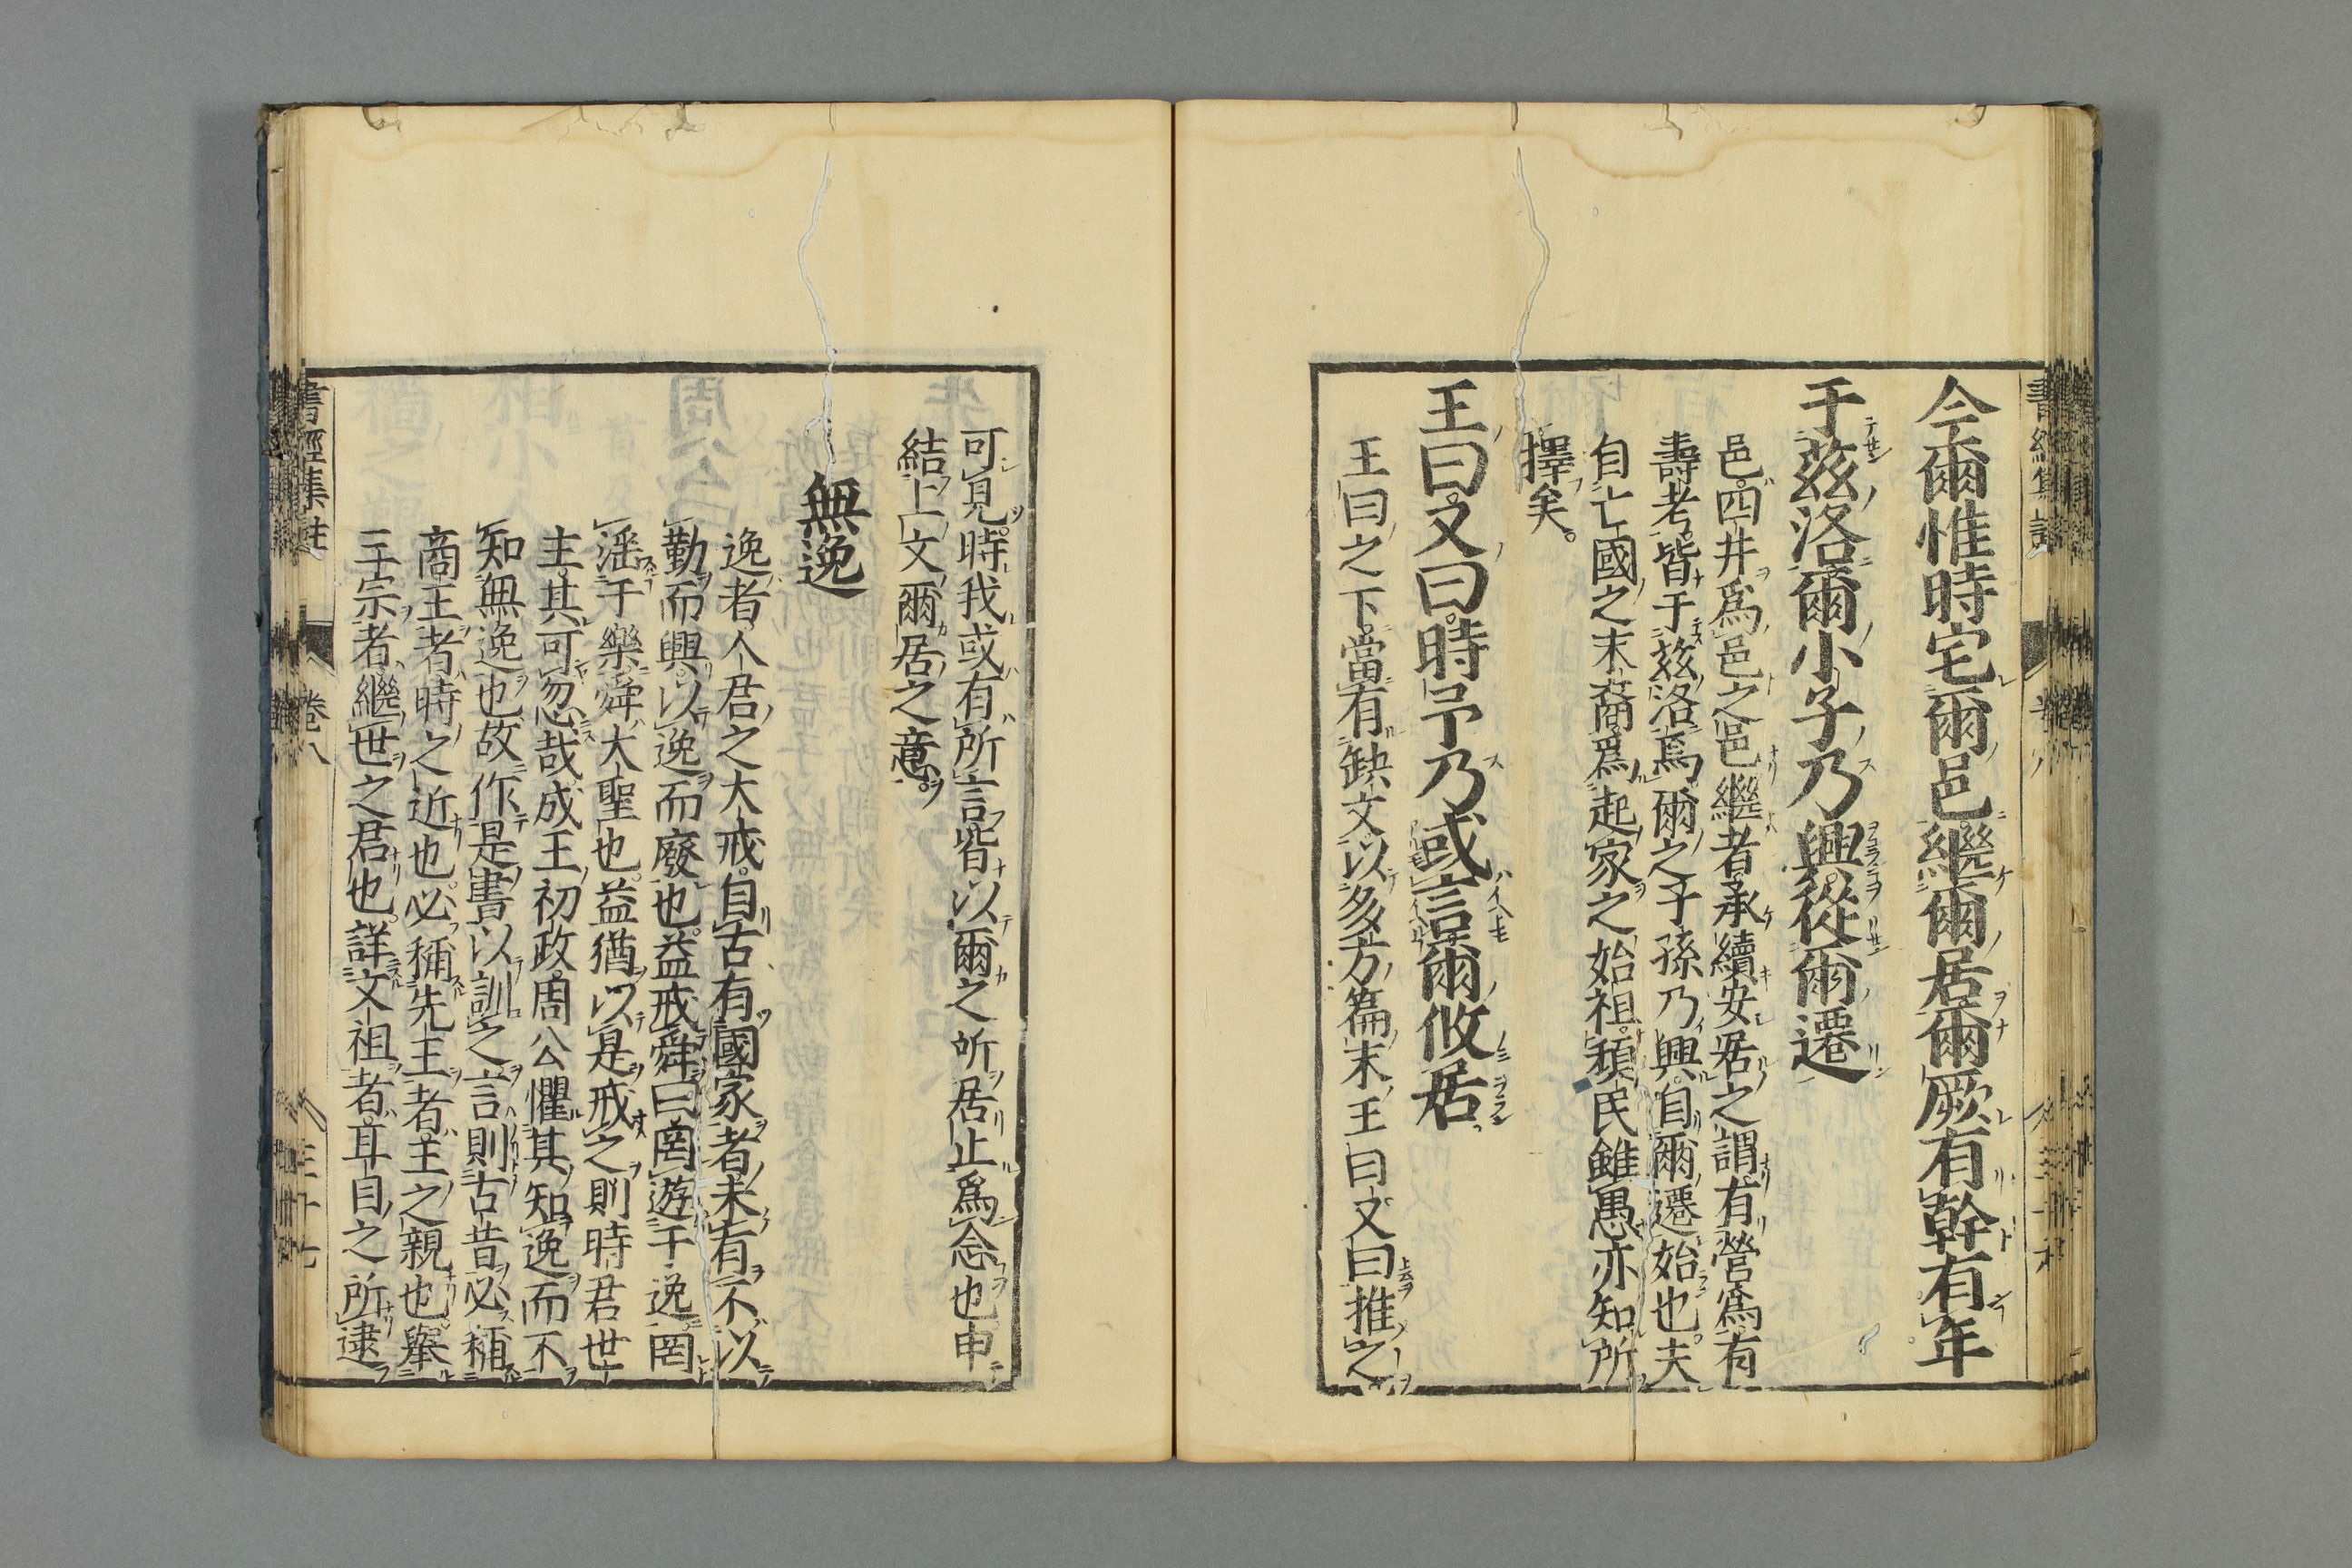 今爾惟時宅爾邑繼爾居爾厥有幹有年
于茲洛爾小子乃興從爾遷
邑四井爲邑之邑繼者承續安居之謂有營爲有
壽考皆于茲洛焉爾之子孫乃興自爾遷始也夫
自亡國之末裔爲起家之始祖頑民雖愚亦知所
擇矣
王曰又曰時予乃或言爾攸居
王曰之下當有缺文以多方篇末王曰又曰推之
可見時我或有所言皆以爾之所居止爲念也申
結上文爾居之意
無逸
逸者人君之大戒自古有國家者未有不以
勤而興以逸而廢也益戒舜曰罔遊于逸罔
淫于樂舜大聖也益猶以是戒之則時君世
主其可忽哉成王初政周公懼其知逸而不
知無逸也故作是書以訓之言則古昔必稱
商王者時之近也必稱先王者王之親也舉
三宗者繼世之君也詳文祖者耳目之所逮
書經集註 卷八 三十七